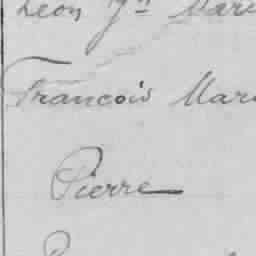 Léon Jn Mari
Francois Mari
Pierre